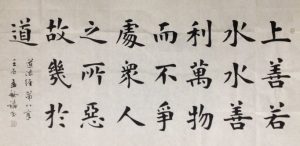 上善若
水水善
利萬物
而不爭
處衆人
之所惡
故幾於
道
道德經第八章